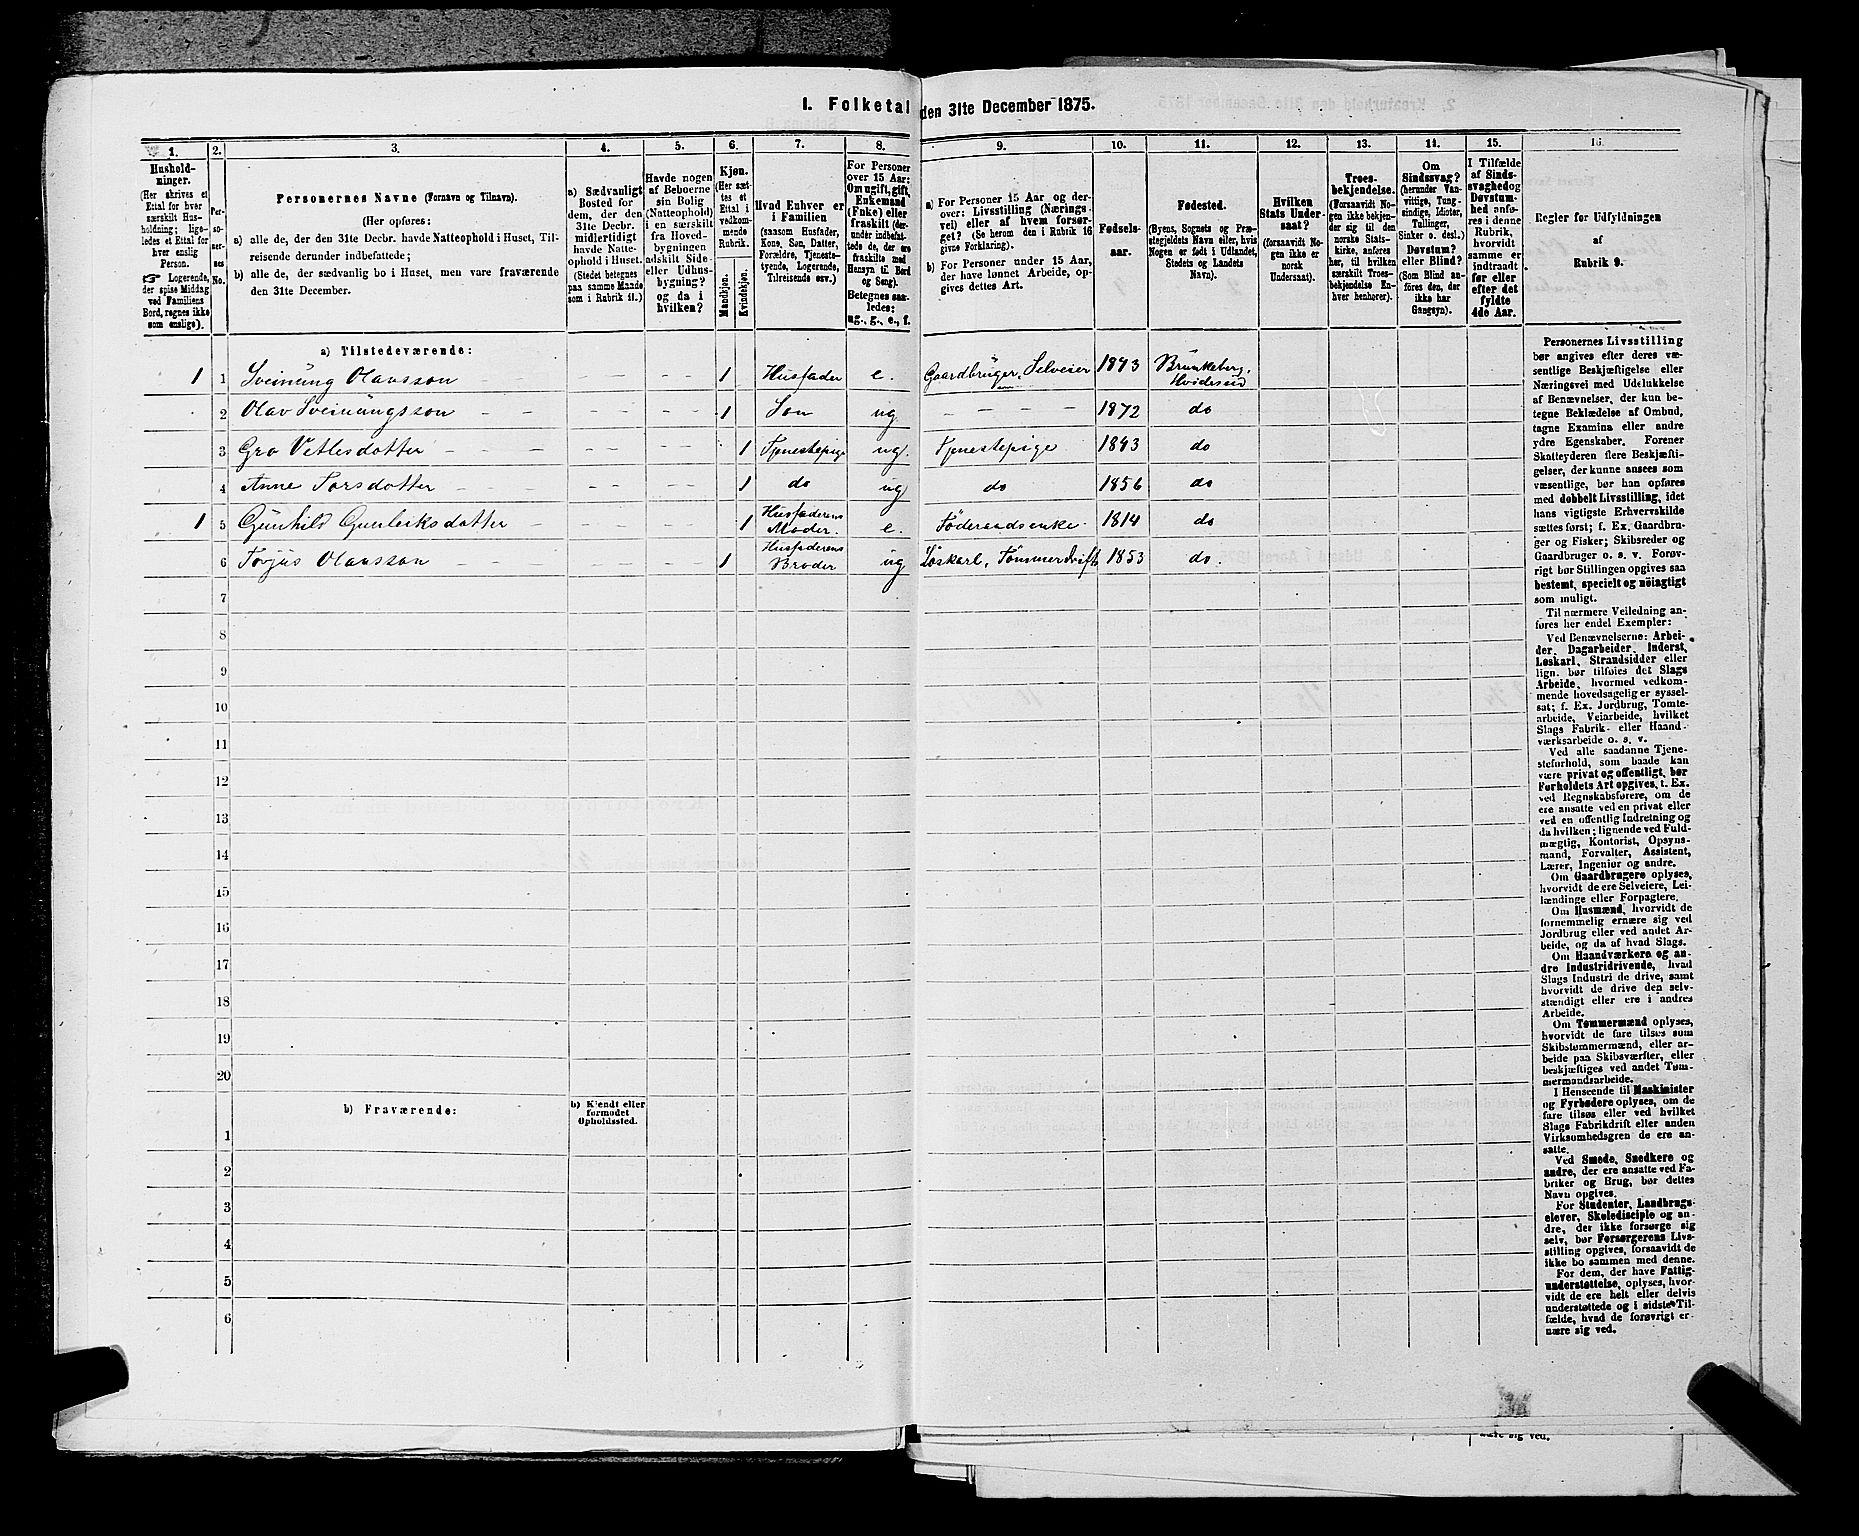 I. Folketal den 31te December 1875.
1. 2. 3. 4. 5. 6. 7. 8. 9. 10. 11. 12. 13. 14. 15. 16.
Hushold-
ninger.
(Her skrives et
Ettal for hver
særskilt Hus-
holdning; lige-
ledes et Ettal for
hver enslig
Person.
☞ Logerende,
der spise Middag
ved Familiens
Bord, regnes ikke
som enslige).
Per-
so-
ner-
nes
No.
Personernes Navne (Fornavn og Tilnavn).
(Her opføres:
a) alle de, der den 31te Decbr. havde Natteophold i Huset, Til-
reisende derunder indbefattede;
b) alle de, der sædvanlig bo i Huset, men vare fraværende
den 31te December.
a) Sædvanligt
Bosted for
dem, der den
31te Decbr.
midlertidigt
havde Natte-
ophold i Huset.
(Stedet betegnes
paa samme Maade
som i Rubrik 11.)
Havde nogen
af Beboerne
sin Bolig
(Natteophold)
i en særskilt
fra Hoved-
bygningen
adskilt Side-
eller Udhus-
bygning?
og da i
hvilken?
Kjøn.
(Her sæt-
tes et
Ettal i
vedkom-
mende
Rubrik.
Mandkjøn.
Kvindekjøn.
Hvad Enhver er
i Familien
(saasom Husfader,
Kone, Søn, Datter,
Forældre, Tjeneste-
tyende, Logerende,
Tilreisende osv.)
For Personer
over 15 Aar:
Om ugift, gift,
Enkemand
(Enke) eller
fraskilt (der-
under indbefat-
tede de, der ere
fraskilte med
Hensyn til Bord
og Seng).
Betegnes saa-
ledes:
ug., g., e., f.
a) For Personer 15 Aar og der-
over: Livsstilling (Nærings-
vei) eller af hvem forsør-
get? (Se herom den i Rubrik 16
givne Forklaring).
b) For Personer under 15 Aar,
der have lønnet Arbeide, op-
gives dettes Art.
Fødsels-
aar.
Fødested.
(Byens, Sognets og Præ-
stegjeldets Navn eller, hvis
Nogen er født i Udlandet,
Stedets og Landets
Navn).
Hvilken
Stats Under-
saat?
(forsaavidt No-
gen ikke er
norsk
Undersaat).
Troes-
bekjendelse.
(Forsaavidt No-
gen ikke bekjen-
der sig til den
norske Stats-
kirke, anføres
her, til hvilken
særskilt Troes-
bekjendelse En-
hver henhører).
Om
Sindssvag?
(herunder Van-
vittige, Tung-
sindige, Idioter,
Tullinger,
Sinker o. desl.)
Døvstum?
eller Blind?
(Som Blind an-
føres den, der
ikke har
Gangsyn).
I Tilfælde
af Sinds-
svaghed og
Døvstum-
hed anfø-
res i denne
Rubrik,
hvorvidt
samme er
indtraadt
før eller
efter det
fyldte
4de Aar.
Regler for Udfyldningen
af
Rubrik 9.
a) Tilstedeværende:
1 1 Sveinung Olavsson 1 Husfader e. Gaardbruger, Selveier 1843 Brunkeberg, Hvideseid
2 Olav Sveinungsson 1 Søn ug 1872 do
3 Gro Vetlesdotter 1 Tjenestepige ug. Tjenestepige 1843 do
4 Anne Torsdotter 1 do ug do 1856 do
1 5 Gunhild Gunleiksdotter 1 Husfaderens Moder. e. Føderaadsenke 1814 do
6 Torjus Olavsson 1 Husfaderens Broder ug Løskarl, Tømmerdrift 1853 do.
7
8
9
10
11
12
13
14
15
16
17
18
19
20
b) Fraværende:
b) Kjendt eller
formodet
Opholdssted.
1
2
3
4
5
6
Personernes Livsstilling
bør angives efter deres væ-
sentlige Beskjæftigelse eller
Næringsvei med Udelukkelse
af Benævnelser, der kun be-
tegne Beklædelse af Ombud,
tagne Examina eller andre
ydre Egenskaber. Forener
Skatteyderen flere Beskjæfti-
gelser, der kunne ansees som
væsentlige, bør han opføres
med dobbelt Livsstilling, idet
hans vigtigste Erhvervskilde
sættes først; f. Ex. Gaardbru-
ger og Fisker; Skibsreder og
Gaardbruger o. s. v. Forøv-
rigt bør Stillingen opgives saa
bestemt, specielt og nøiagtigt
som muligt.
Til nærmere Veiledning an-
føres her endel Exempler:
Ved Benævnelserne: Arbei-
der, Dagarbeider, Inderst,
Løskarl, Strandsidder eller
lign. bør tilføies det Slags
Arbeide, hvormed vedkom-
mende hovedsagelig er syssel-
sat; f. Ex. Jordbrug, Tomte-
arbeide, Veiarbeide, hvilket
Slags Fabrik- eller Haand-
værksarbeide o. s. v.
Ved alle saadanne Tjene-
steforhold, som baade kan
være privat og offentligt, bør
Forholdets Art opgives, f. Ex.
ved Regnskabsførere, om de
ere ansatte ved en privat eller
ved en offentlig Indretning og
da hvilken; lignende ved Fuld-
mægtig, Kontorist, Opsyns-
mand, Forvalter, Assistent,
Lærer, Ingeniør og andre.
Om Gaardbrugere oplyses,
hvorvidt de ere Selveiere, Lei-
lændinge eller Forpagtere.
Om Husmænd, hvorvidt de
fornemmelig ernære sig ved
Jordbrug eller ved andet Ar-
beide, og da af hvad Slags.
Om Haandværkere og an-
dre Industridrivende, hvad
Slags Industri de drive, samt
hvorvidt de drive den selv-
stændigt eller ere i andres
Arbeide.
Om Tømmermænd oplyses,
hvorvidt de fare tilsøs som
Skibstømmermænd, eller ar-
beide paa Skibsværfter, eller
beskjæftiges ved andet Tøm-
mermandsarbeide.
I Henseende til Maskinister
og Fyrbødere oplyses, om de
fare tilsøs eller ved hvilket
Slags Fabrikdrift eller anden
Virksomhedsgren de ere an-
satte.
Ved Smede, Snedkere og
andre, der ere ansatte ved Fa-
briker og Brug, bør dettes
Navn opgives.
For Studenter, Landbrugs-
elever, Skoledisciple og an-
dre, der ikke forsørge sig
selv, bør Forsørgerens Livs-
stilling opgives, forsaavidt de
ikke bo sammen med denne.
For dem, der have Fattig-
understøttelse, oplyses, hvor-
vidt de ere helt eller delvis
understøttede og i sidste Til-
fælde, hvad de forøvrigt er-
nære sig ved.
nære sig ved.